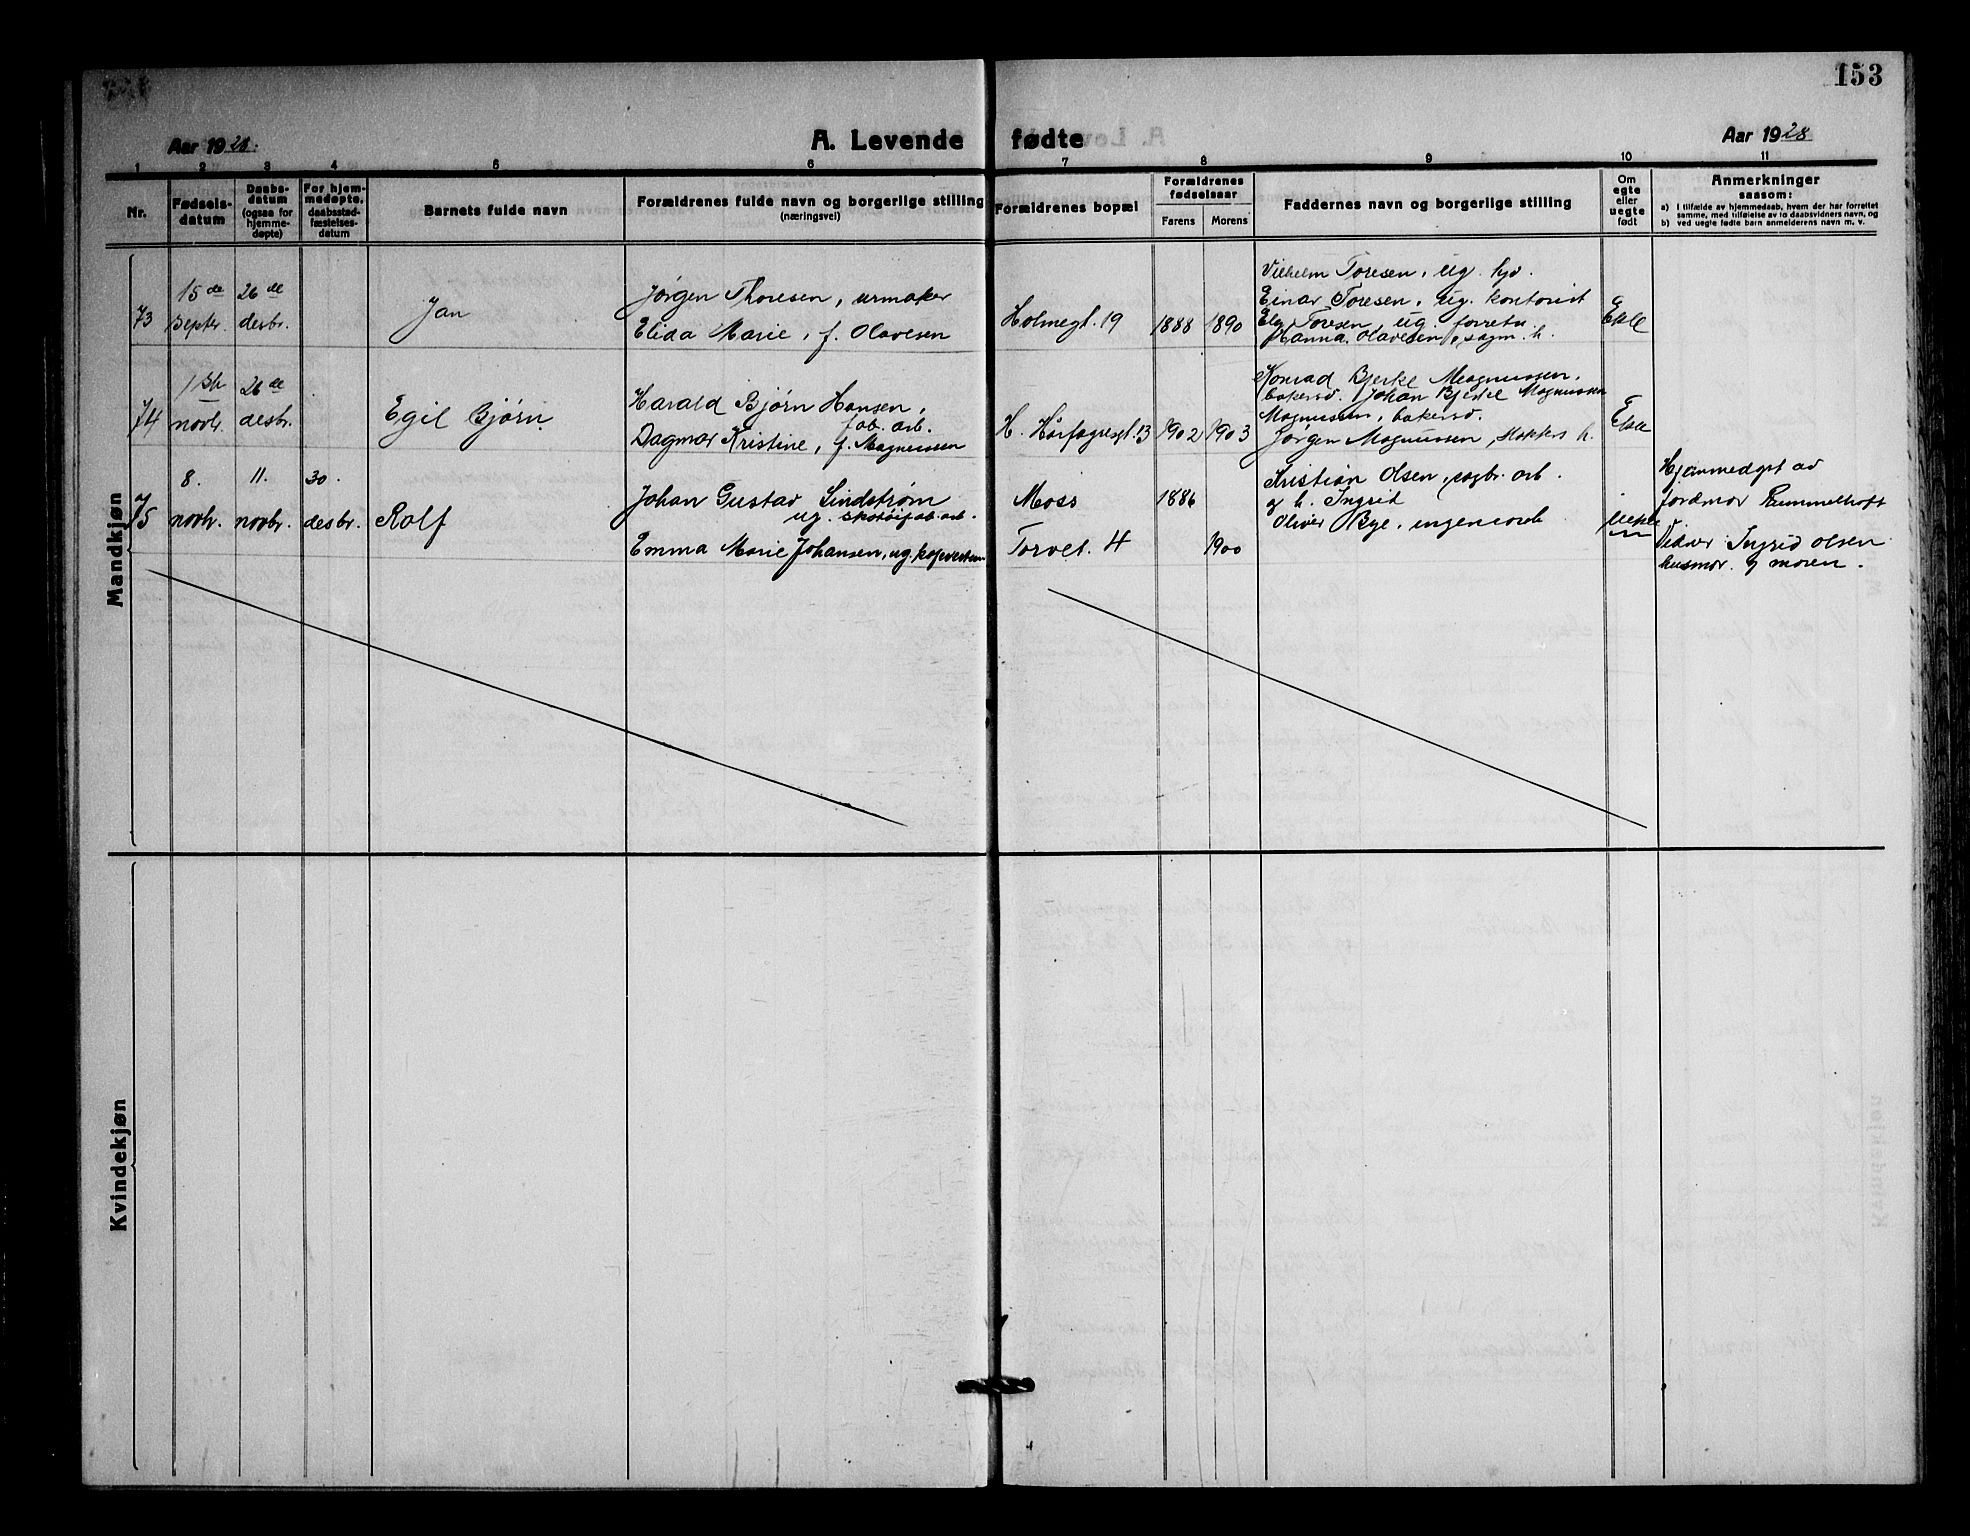 153
Aar 1928.
A. Levende fødte
Aar 1928
1 2 3 4 5 6 7 8 9 10 11
Nr.
Fødsels-
datum
Daabs-
datum
(ogsaa for
hjemme-
døpte)
For hjem-
medøpte,
daabsstad-
fæstelses-
datum
Barnets fulde navn
Forældrenes fulde navn og borgerlige stilling
(næringsvei)
Forældrenes bopæl
Forældrenes
fødselsaar
Farens Morens
Faddernes navn og borgerlige stilling
Om
egte
eller
uegte
født
Anmerkninger
saasom:
a) I tilfælde av hjemmedaab, hvem der har forrettet
samme, med tilføielse av to daabsvidners navn, og
b) ved uegte fødte barn anmelderens navn m. v.
Mandkjøn
73
15de
septr.
26de
desbr.
Jan
Jørgen Thoresen, urmaker
Elida Marie, f. Olavesen
Holmegt. 19
1888 1890
Vilhelm Toresen, ug.
Einar Toresen, ug. kontorist
Toresen ug.
Hanna Olavesen, h.
Ekte
74
1ste
novbr.
26de
desbr.
Egil Bjørn
Harald Bjørn Hansen,
fab. arb.
Dagmar Kristine, f. Magnussen
H. Hårfagresgt. 13
1902 1903
Konrad Bjerke Magnussen,
bakersv. Johan Bjerke Magnussen
Magnussen, bakersv.
Jørgen Magnussen, h.
Ekte
75
8.
novbr.
11.
novbr.
30.
desbr.
Rolf
Johan Gustav Lindstrøm
ug. skotøifab. arb.
Emma Marie Johansen, ug.
Moss
Torvet. 4
1886
1900
Kristian Olsen, arb.
og h. Ingrid
Oliver Bye,
Uekte
Hjemmedøpt av
jordmor Rummelhoft
Vidner Ingrid Olsen
husmor og moren.
Kvindekjøn